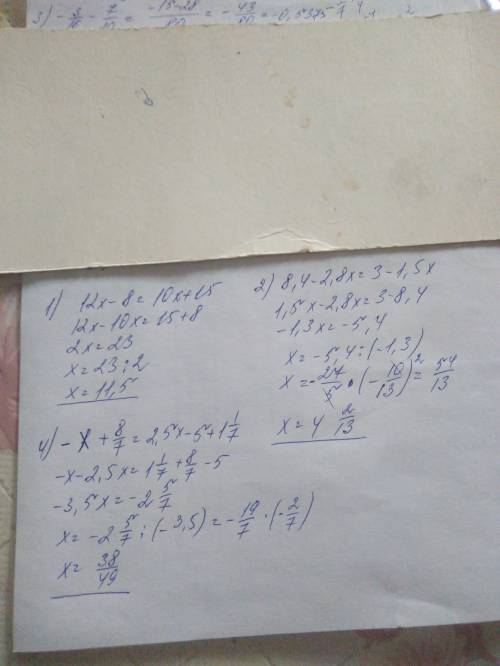 3) -3/8 - 7/10 = -15-28/80 = -43/80 = -0,5375
1) 12x-8=10x+15
12x-10x=15+8
2x=23
x=23:2
x=11,5
2) 8,4-2,8x=3-1,5x
1,5x-2,8x=3-8,4
-1,3x=-5,4
x=-5,4:(-1,3)
x=-27/5·(-10/13)²=54/13
x=4 2/13
4) -x+8/7=2,5x-5+1 1/7
-x-2,5x=1 1/7+8/7-5
-3,5x=-2 5/7
x=-2 5/7:(-3,5)=-19/7·(-2/7)
x=38/49